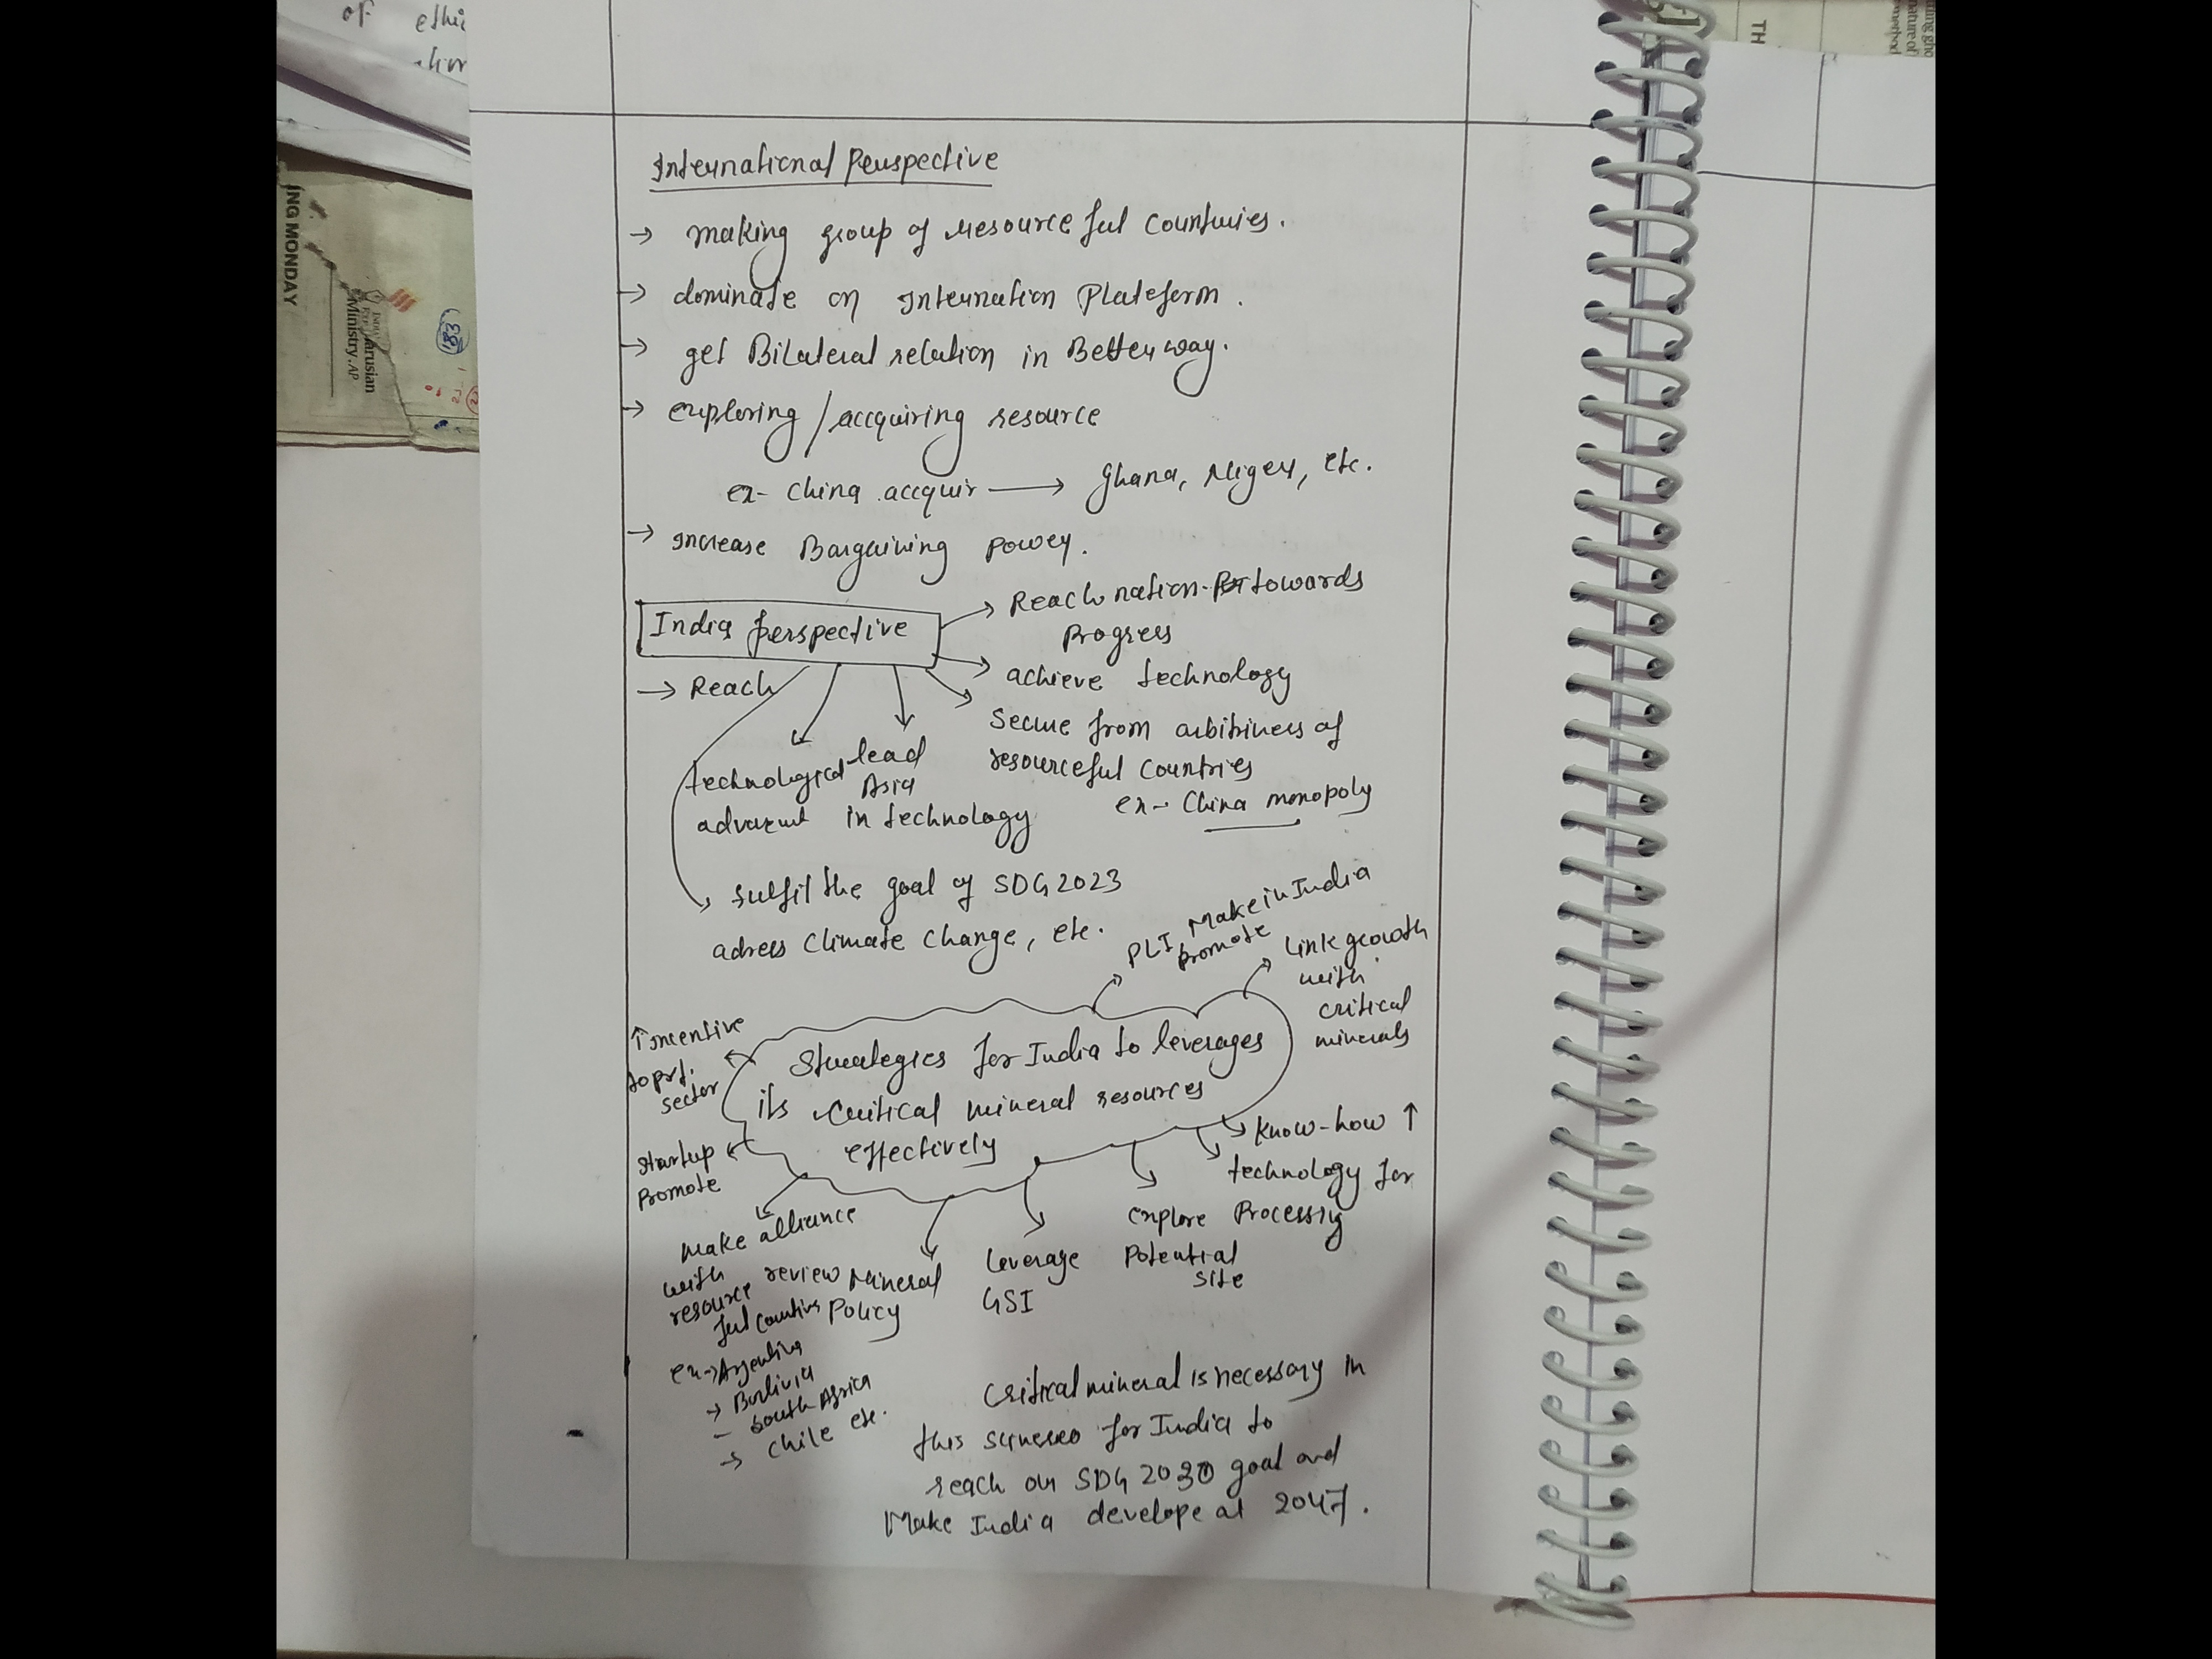 of ethic
ING MONDAY
Ministry. AP
arusian
183
TH
International Perspective
→ making group of resource ful countries.
→ dominate on Internation Plateform.
→ get Bilateral relation in Better way.
→ exploring / accquiring resource
ex- China accquir → Ghana, Niger, etc.
→ Increase Bargaining power.
India perspective
→ Reach nation towards
Progress
→ achieve technology
→ Reach
Secure from of
resourceful countries
ex- China monopoly
lead
Asia
in technology
technological
fulfil the goal of SDG 2023
adress Climate Change, etc.
PLI Make in India
promote
Link growth
with
critical
minerals
↑ Incentive
to pvt.
sector
Strategies for India to leverages
its Critical mineral resources
effectively
Know-how ↑
technology for
Processing
explore
Potential
site
Leverage
GSI
review Mineral
Policy
startup
Promote
Make alliance
with
resource
ful countries
ex → Argentina
→ Bolivia
– South Africa
→ Chile etc.
Critical mineral is necessary in
this for India to
reach on SDG 2030 goal and
Make India develope at 2047.